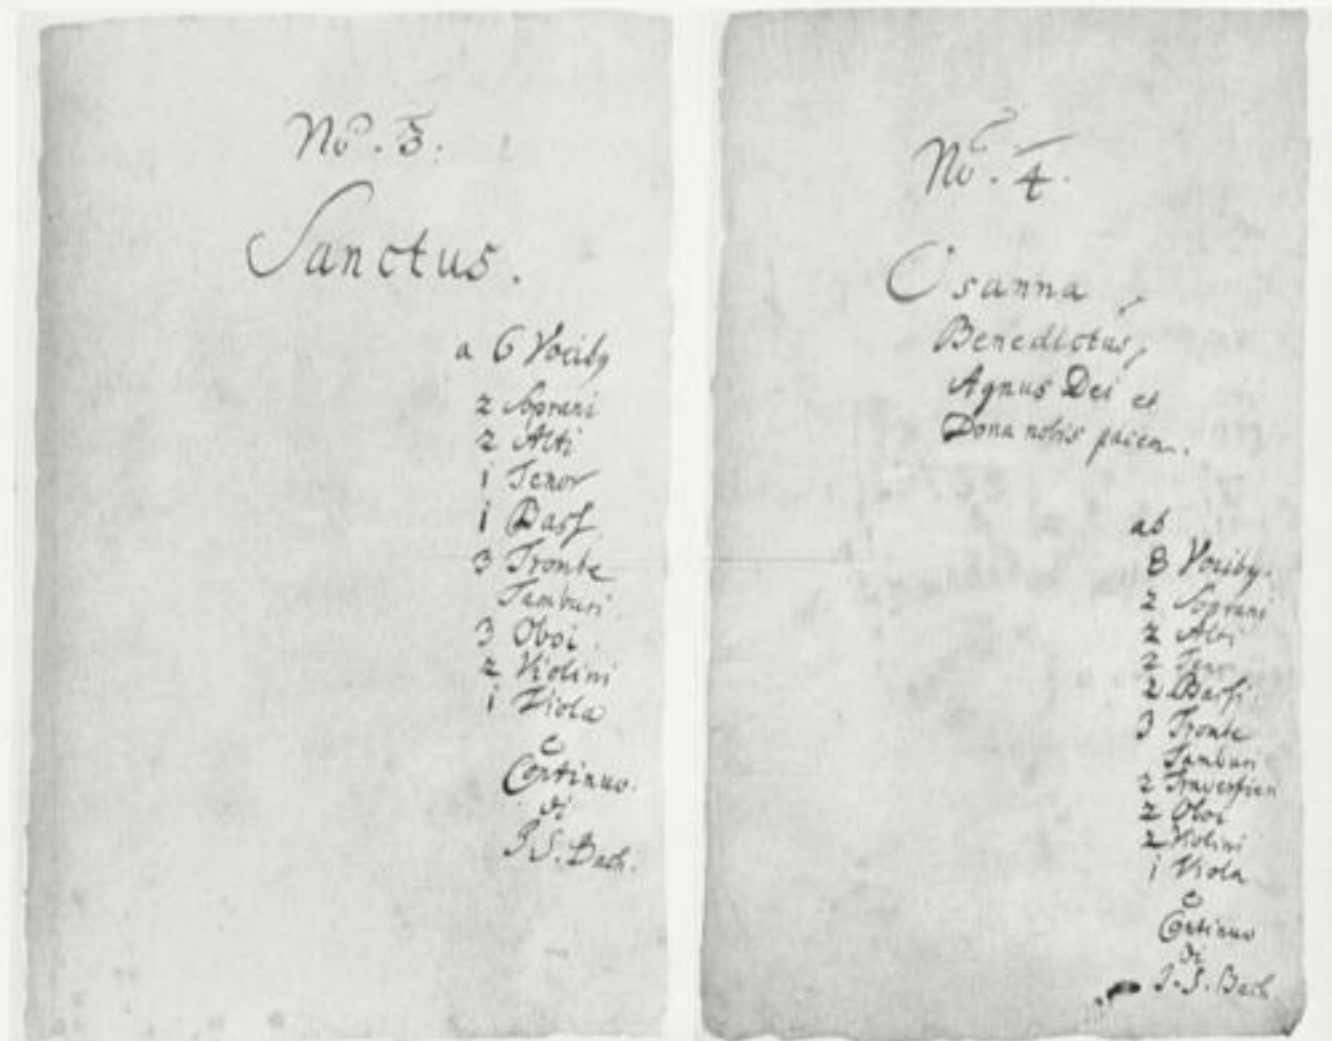 No. 3.
Sanctus.
a 6 Vocibg
2 Soprani
2 Alti
1 Tenor
1 Bass
3 Trombe
Tamburi.
3 Oboi.
2 Violini
1 Viola
e
Continuo.
di
J. S. Bach.
No. 4.
Osanna,
Benedictus,
Agnus Dei et
Dona nobis pacem.
ab
8 Vocibg.
2 Soprani
2 Alti
2 Tenor
2 Bassi.
3 Trombe
Tamburi
2
2 Oboi
2 Violini
1 Viola
e
Continuo
di
J. S. Bach.